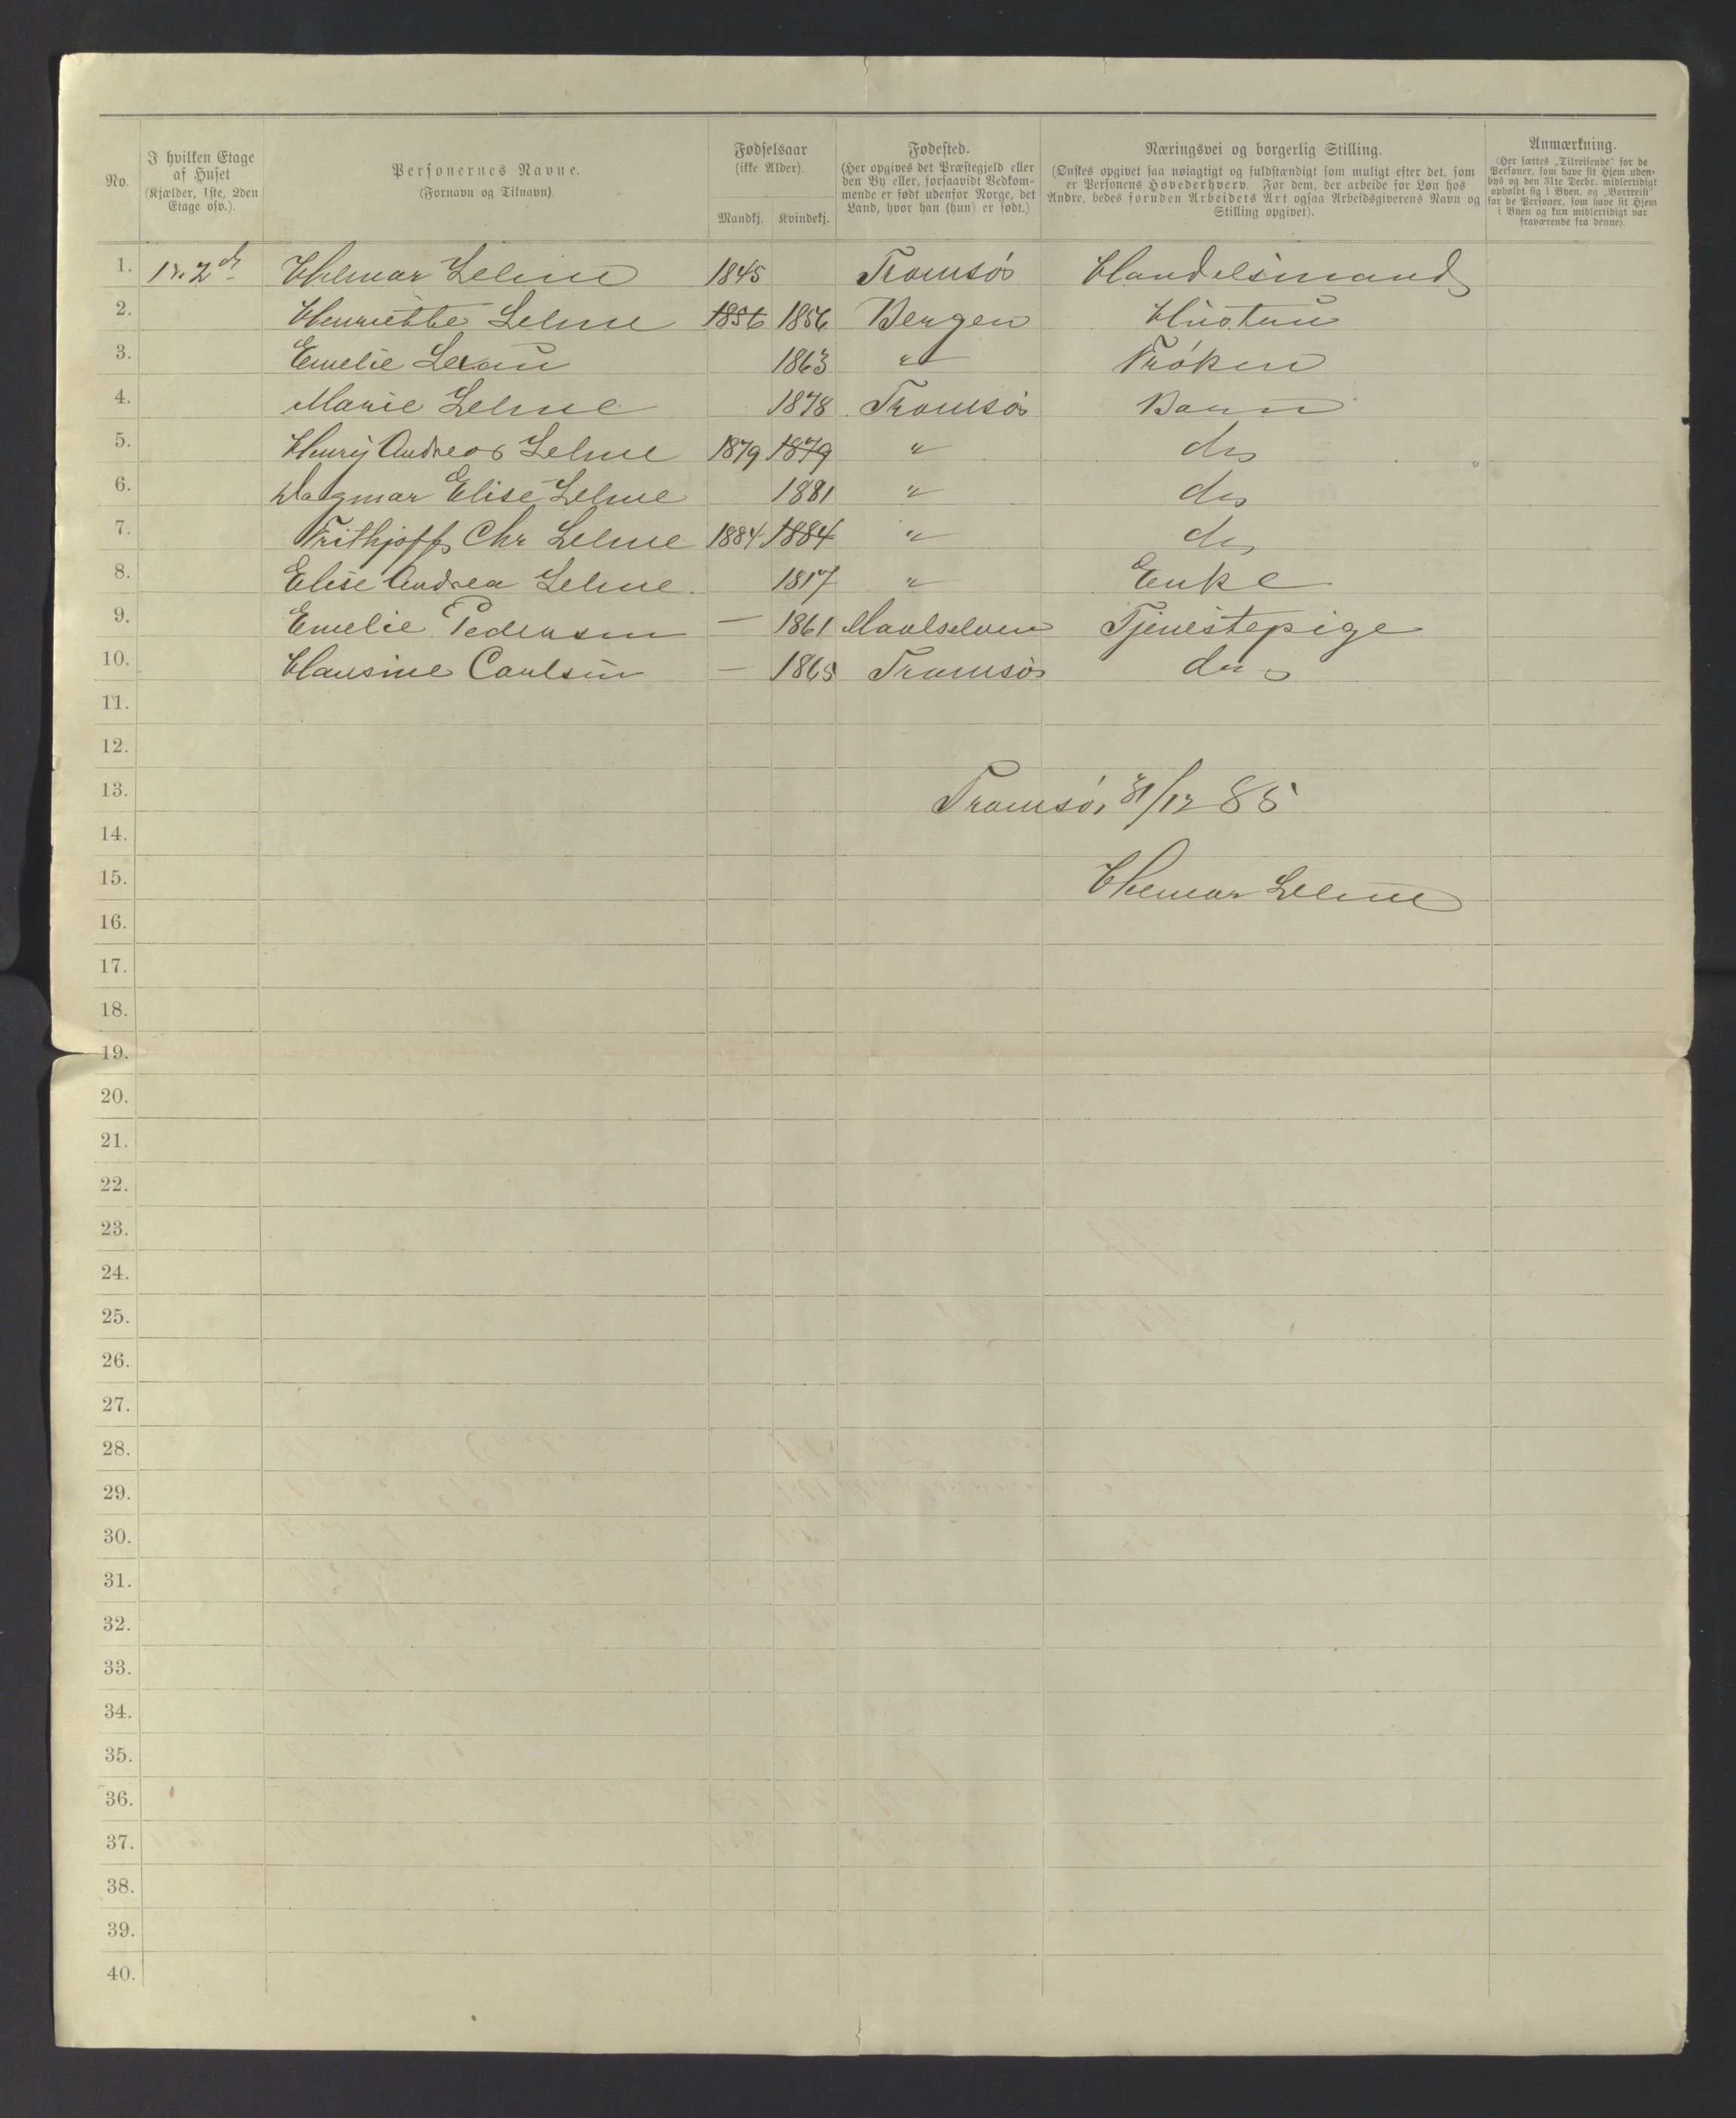 No.
I hvilken Etage af Huset (Kjælder, 1ste, 2den Etage osv.).
Personernes Navne. (Fornavn og Tilnavn).
Fødselsaar (ikke Alder).
Mandkj. Kvindekj.
Fødested. (Her opgives det Præstegjeld eller den By eller, forsaavidt Vedkommende er født udenfor Norge, det Land, hvor han (hun) er født.)
Næringsvei og borgerlig Stilling. (Ønskes opgivet saa nøiagtigt og fuldstændigt som muligt efter det, som er Personens Hovederhverv. For dem, der arbeide for Løn hos Andre, bedes foruden Arbeidets Art ogsaa Arbeidsgiverens Navn og Stilling opgivet).
Anmærkning. (Her sættes „Tilreisende" for de Personer, som have sit Hjem udenbys og den 31te Decbr. midlertidigt opholdt sig i Byen, og „Bortreist" for de Personer, som have sit Hjem i Byen og kun midlertidigt var fraværende fra denne).
1. Hilmar Lelme 1845 Tromsö Handelsmand
2. Henriette Lelme 1856 1856 Bergen Hustru
3. Emelie 1863 " Frøken
4. Marie Lelme 1878 Tromsö Barn
5. Henry Andreas Lelme 1879 1879 " do
6. Dagmar Elise Lelme 1881 " do
7. Frithjoff Chr Lelme 1884 1884 " do
8. Elise Andrea Lelme 1817 " Enke
9. Emelie Pedersen — 1861 Maalselven Tjenestepige
10. Hansine Carlsen — 1865 Tromsö do
11.
12.
13. Tromsö, 31/12 85
14.
15. Hilmar Lelme
16.
17.
18.
19.
20.
21.
22.
23.
24.
25.
26.
27.
28.
29.
30.
31.
32.
33.
34.
35.
36.
37.
38.
39.
40.